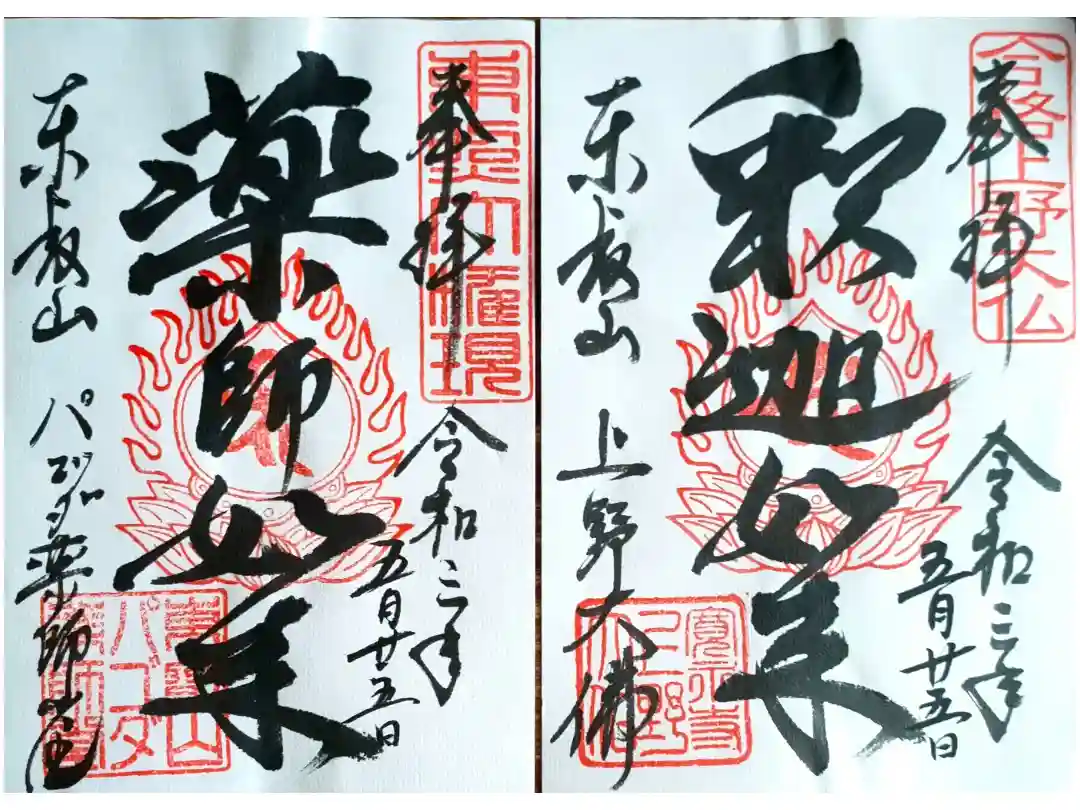 合格上野大仏
奉拝
令和三年
五月廿五日
釈迦如来
東叡山 上野大佛
寛永寺
東照大権現
奉拝
令和三年
五月廿五日
薬師如来
東叡山 パゴダ薬師堂
東叡山
パゴダ
薬師堂